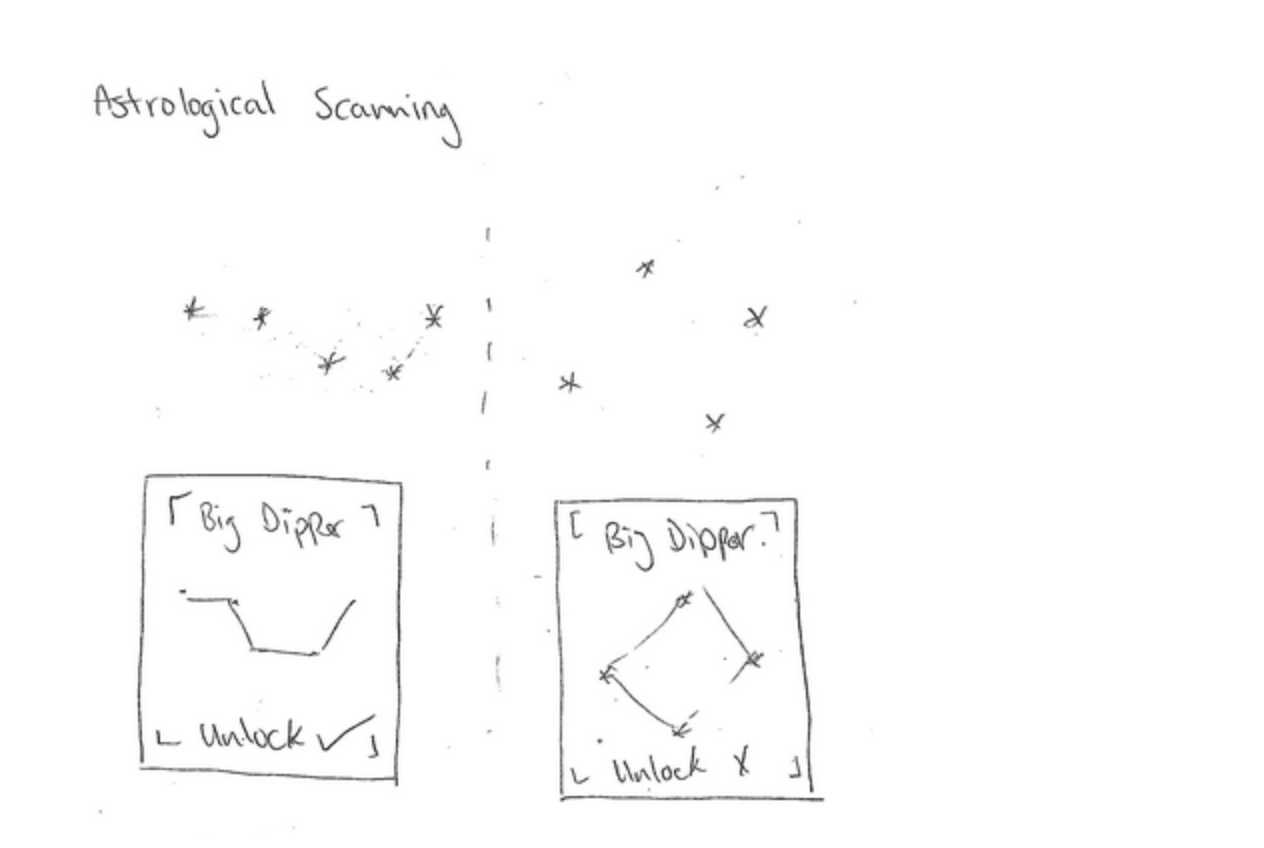 Astrological Scanning
Big Dipper
Unlock ✓
Big Dipper.
Unlock X